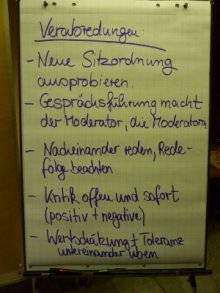 Verabredungen:
- Neue Sitzordnung
ausprobieren
- Gesprächsführung macht
der Moderator, die Moderatorin
- Nacheinander reden, Rede-
folge beachten
- Kritik offen und sofort
(positiv + negative)
- Wertschätzung + Toleranz
untereinander üben